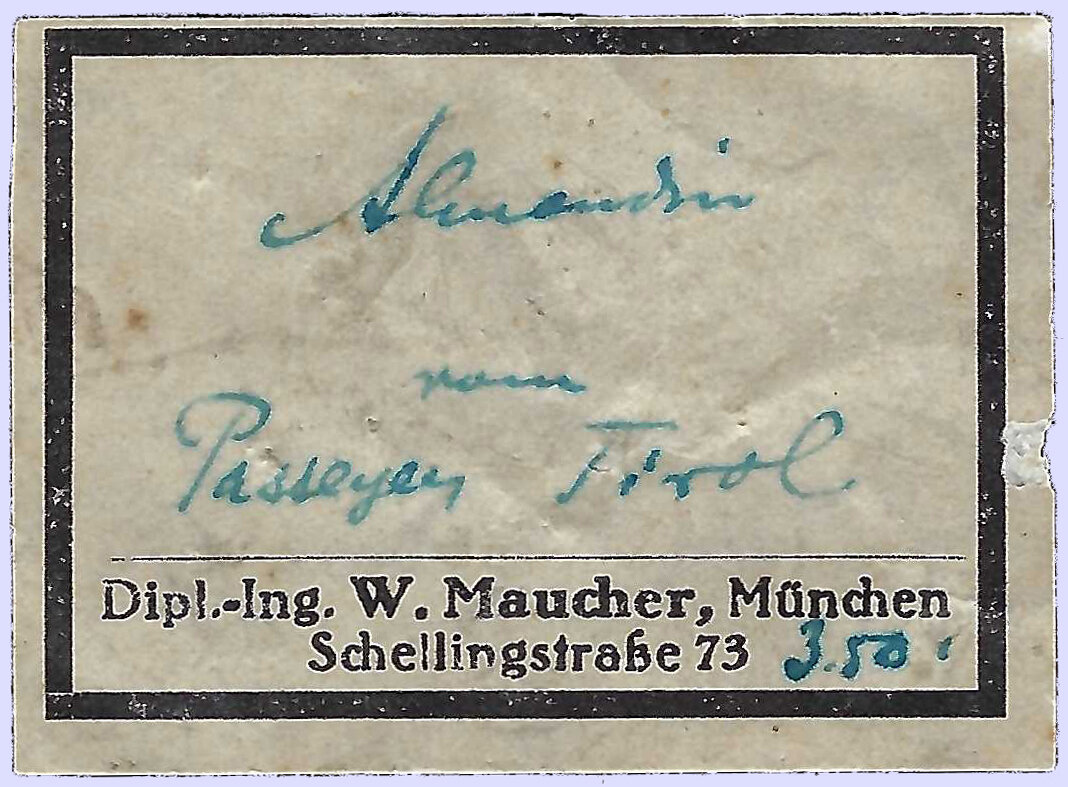 Almandin
vom
Passeyer, Tirol
Dipl.-Ing. W. Maucher, München
Schellingstraße 73 3.50